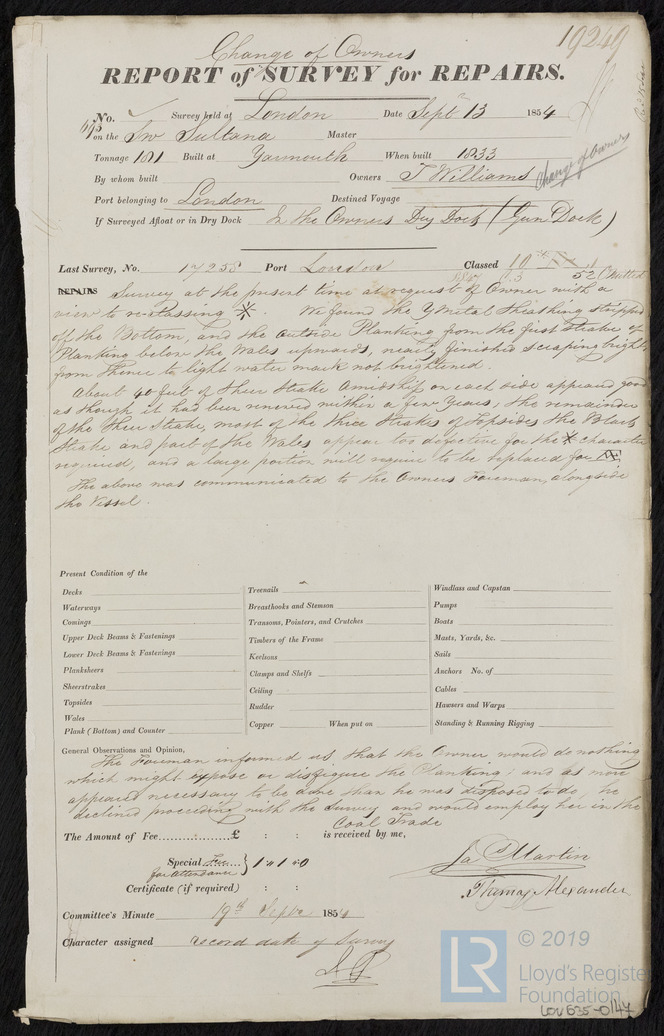 19249
Change of Owners
REPORT of SURVEY for REPAIRS.
No. 693 Survey held at London Date Sept 13 1854
on the Sw Sultana Master
Tonnage 181 Built at Yarmouth When built 1833
By whom built Owners T Williams Change of Owners
Port belonging to London Destined Voyage
If Surveyed Afloat or in Dry Dock In the Owners Dry Dock (Gun Dock)
Last Survey, No. 17258 Port London Classed 10
52 Omitted
REPAIRS Survey at the present time at request of Owner with a
view to re-classing *. We found the Y Metal Sheathing stripped
off the Bottom, and the outside Planking from the first Strake of
Planking below the Wales upwards, nearly finished scraping bright,
from thence to light water mark not brightened.
About 40 feet of Sheer Strake Amidship on each side appeared good
as though it had been renewed within a few Years, the remainder
of the Sheer Strake, most of the three Strakes of Topsides the Black
Strake and part of the Wales appear too defective for the * character
required, and a large portion will require to be replaced for Æ
The above was communicated to the Owners Foreman, alongside
the Vessel.
Present Condition of the
Decks
Waterways
Comings
Upper Deck Beams & Fastenings
Lower Deck Beams & Fastenings
Planksheers
Sheerstrakes
Topsides
Wales
Plank (Bottom) and Counter
Treenails
Breasthooks and Stemson
Transoms, Pointers, and Crutches
Timbers of the Frame
Keelsons
Clamps and Shelfs
Ceiling
Rudder
Copper When put on
Windlass and Capstan
Pumps
Boats
Masts, Yards, &c.
Sails
Anchors No. of
Cables
Hawsers and Warps
Standing & Running Rigging
General Observations and Opinion,
The Foreman informed us, that the Owner would do nothing
which might expose or disfigure the Planking; and as more
appeared necessary to be done than he was disposed to do, he
declined proceeding with the Survey and would employ her in the
Coal Trade
The Amount of Fee £ : : is received by me,
Special Fee for Attendance } 1 " 1 " 0
Ja Martin
Certificate (if required) : :
Thomas Alexander
Committee's Minute 19th Septr. 1854
Character assigned record date of Survey
© 2019
LR
Lloyd's Register
Foundation
LOU635-0147